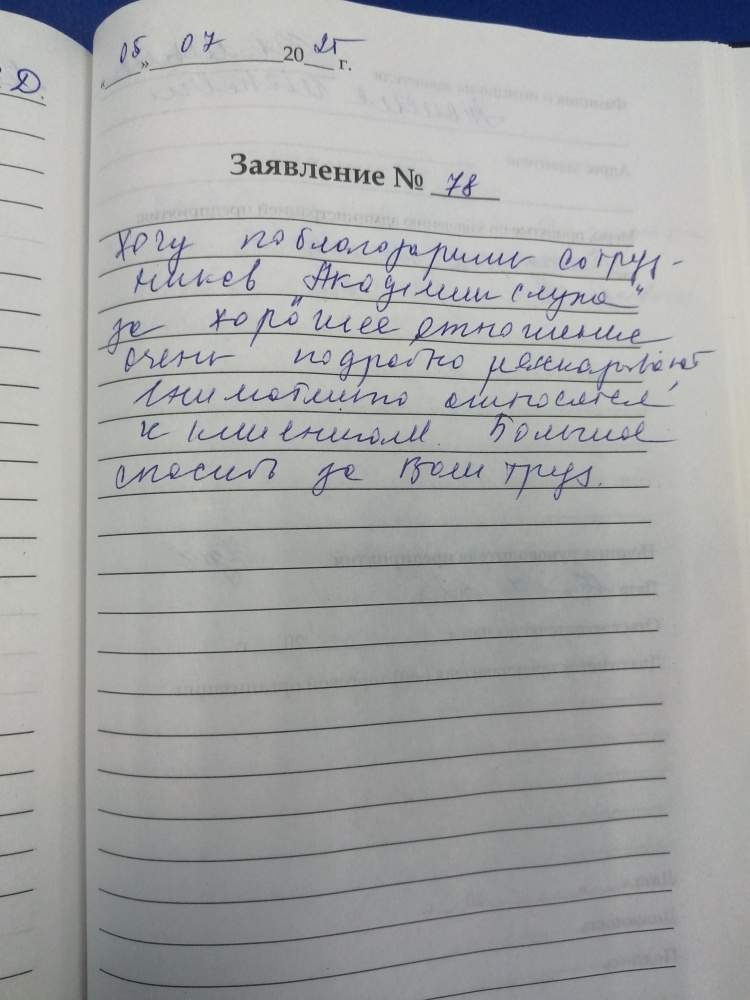 Д.
«05» 07 2025 г.
Заявление № 78
Хочу поблагодарить сотруд-
ников "Академии слуха"
за хорошее отношение
очень подробно рассказывают
внимательно относятся,
к клиентам. Большое
спасибо за Ваш труд.